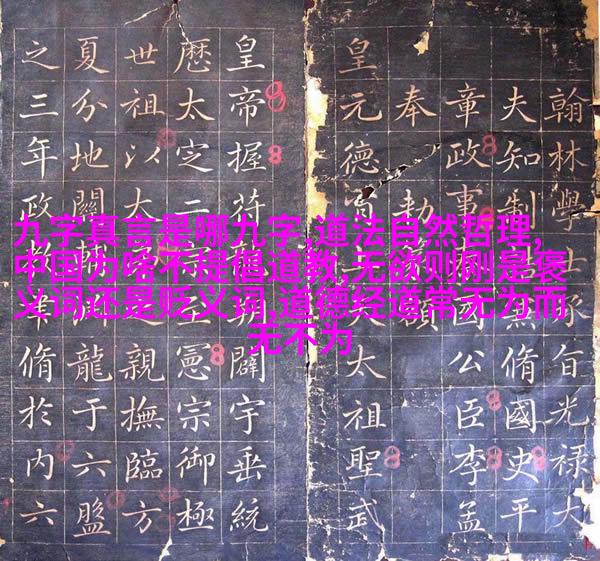 九字真言是哪九字,道法自然哲理,
中国为啥不提倡道教,无欲则刚是褒
义词还是贬义词,道德经道常无为而
无不为
翰林學士承旨光祿大
夫知制誥兼脩國史平
章政事國公臣李孟
奉勅
皇元德太祖聖武
皇帝握符闢宇垂統
歷太定二宗憲宗御極
世祖以大之親撫臨方
夏分地關輔龍于六盤
之三年政教脩於内六